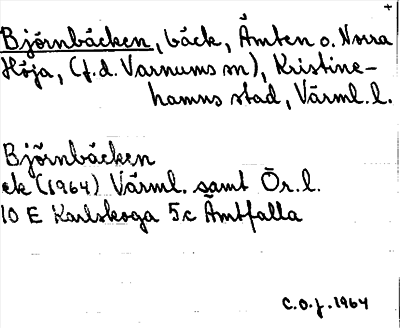 +
Björnbäcken, bäck, Åmten o. Norra
Höja, (f.d. Varnums sn), Kristine-
hamns stad, Värml. l.
Björnbäcken
ek (1964) Värml. samt Ör. l.
10 E Karlskoga 5c Åmtfalla
C.O.J. 1964